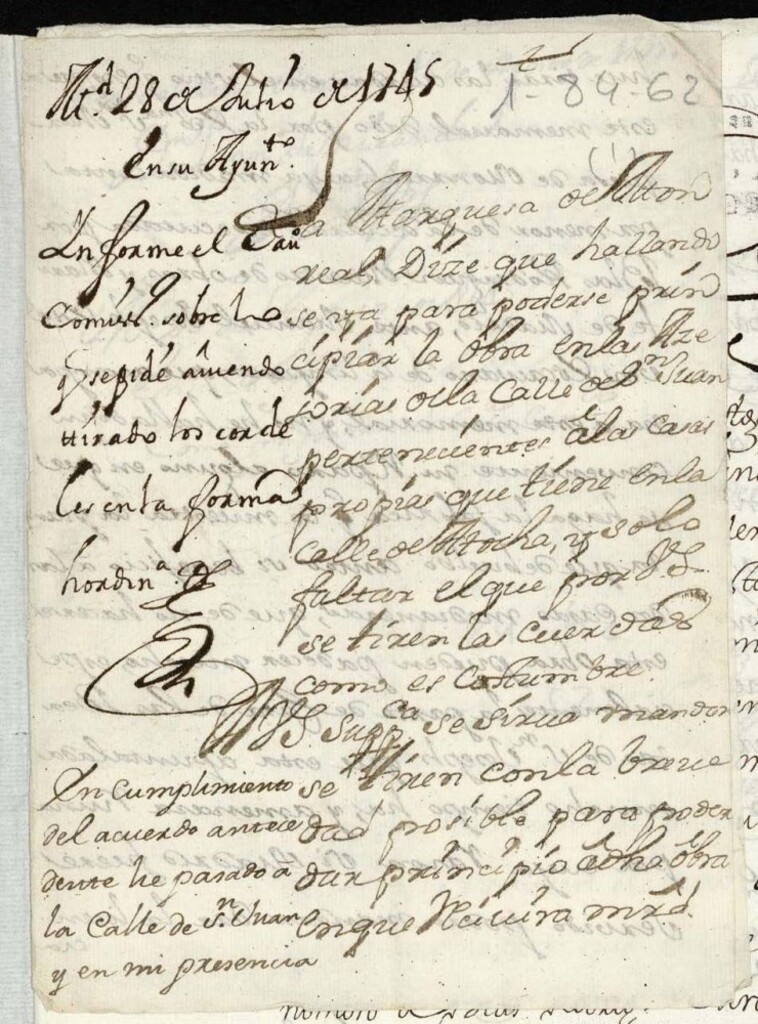 M.d 28 de Julio de 1745
1-84-62
(1)
En su Ayunt.to
Informe el Cav.o
Comis.o sobre lo
q.e se pide aviendo
tirado los corde
les en la forma
hordin.a
La Marquesa de Mon
real, Dize que hallando
se ya para poderse prin
cipiar la obra en la Aze
sorias de la Calle de S.n Juan
pertenecientes a las Casas
propias que tiene en la
Calle de Atocha, y solo
faltar el que por V.S.
se tiren las cuerdas
como es Costumbre.
A V.S. supp.ca se sirva mandar
se tiren con la breve
dad posible para poder
dar principio a dha obra
en que Recivira mrd.
En cumplimiento
del acuerdo antece
dente he pasado a
la Calle de S.n Juan
y en mi presencia